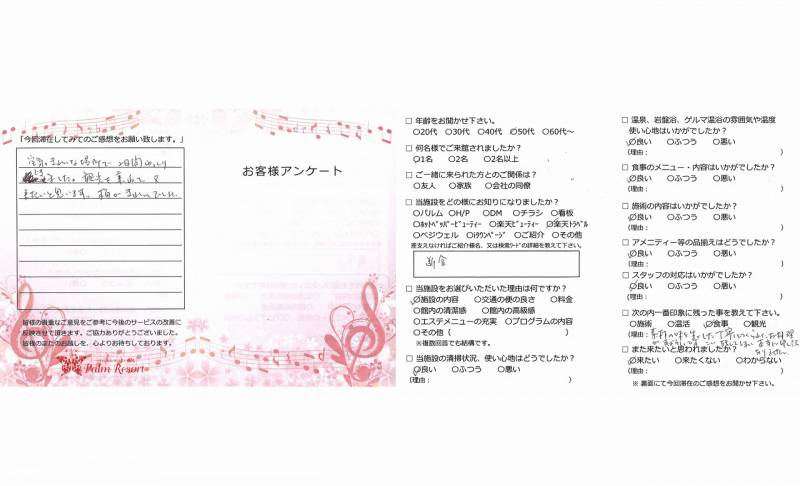 「今回滞在してみてのご感想をお願い致します。」
空気のきれいな場所で2日間ゆっくり
できました。
きたいと思います。桜がきれいでした。
皆様の貴重なご意見をご参考に今後のサービスの改善に
反映させて頂きます。ご協力ありがとうございました。
皆様のまたのお越しを、心よりお待ちしております。
Palm Resort
お客様アンケート
□ 年齢をお聞かせ下さい。
○20代 ○30代 ○40代 ○50代 ○60代～
□ 何名様でご来館されましたか？
○1名 ○2名 ○2名以上
□ ご一緒に来られた方とのご関係は？
○友人 ○家族 ○会社の同僚
□ 当施設をどの様にお知りになりましたか？
○パルム ○H/P ○DM ○チラシ ○看板
○ホットペッパービューティー ○楽天ビューティー ○楽天トラベル
○ベジウェル ○iタウンページ ○ご紹介 ○その他
差支えなければご紹介様名、又は検索ワードの詳細を教えて下さい。
断食
□ 当施設をお選びいただいた理由は何ですか？
○施設の内容 ○交通の便の良さ ○料金
○館内の清潔感 ○館内の高級感
○エステメニューの充実 ○プログラムの内容
○その他（ ）
※複数回答でも結構です。
□ 当施設の清掃状況、使い心地はどうでしたか？
○良い ○ふつう ○悪い
（理由： ）
□ 温泉、岩盤浴、ゲルマ温浴の雰囲気や温度
使い心地はいかがでしたか？
○良い ○ふつう ○悪い
（理由： ）
□ 食事のメニュー・内容はいかがでしたか？
○良い ○ふつう ○悪い
（理由： ）
□ 施術の内容はいかがでしたか？
○良い ○ふつう ○悪い
（理由： ）
□ アメニティー等の品揃えはどうでしたか？
○良い ○ふつう ○悪い
（理由： ）
□ スタッフの対応はいかがでしたか？
○良い ○ふつう ○悪い
（理由： ）
□ 次の内一番印象に残った事を教えて下さい。
○施術 ○温活 ○食事 ○観光
（理由： 素材の味を生かした丁寧につくられたお料理
□ また来たいと思われましたか？
○来たい ○来たくない ○わからない
（理由： ）
※ 裏面にて今回滞在のご感想をお聞かせ下さい。